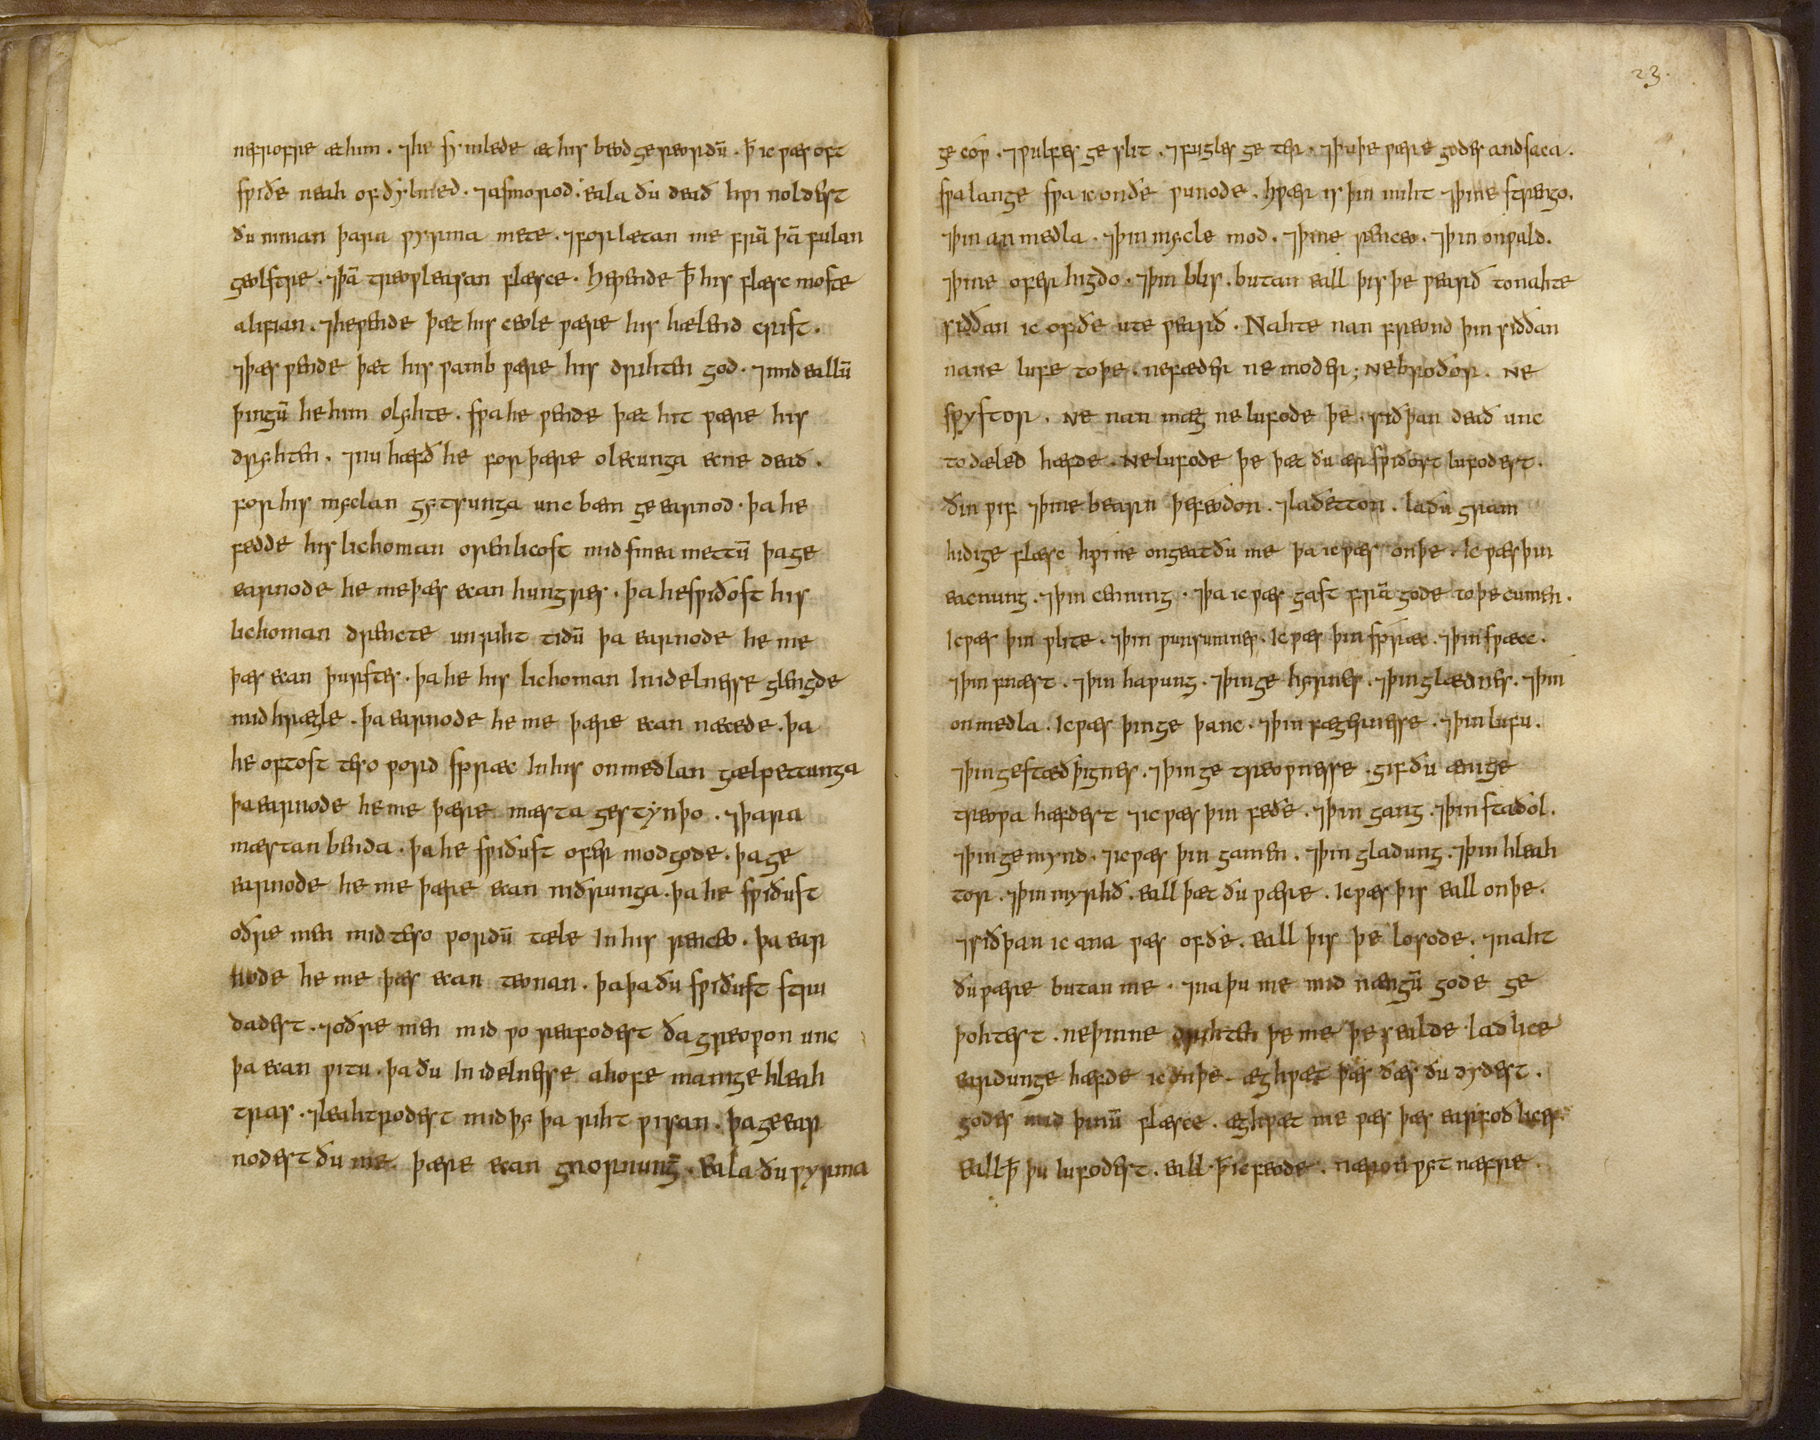 neriofre æt him . ⁊ he symlede æt his beod gereordū . ꝥ ic ƿæs oft
sƿiðe neah ofðylmed . ⁊ asmorod . eala ðu deað hƿi noldest
ðu niman þara ƿyrma mete . ⁊ forlætan me frā þā fulan
geolstre . ⁊ þā treoƿleasan flæsce . Heƿende ꝥ his flæsc moste
alifian . ⁊ heƿende þæt his ceole ƿære his hælend crist .
⁊ þæs ƿende þæt his ƿamb ƿære his drihten god . ⁊ mid eallū
þingū he him olehte . sƿa he ƿende þæt hit ƿære his
dryhten . ⁊ nu hæfð he for þære olecunga ecne deað .
for his myclan gytsunga unc bæm geearnod . þa he
fedde his lichoman orenlicost mid smea mettū þa ge
earnode he me þæs ecan hungres . þa he sƿiðost his
lichoman drencte unriht tidū þa earnode he me
þæs ecan þurstes . þa he his lichoman in idelnesse glengde
mid hrægle . þa earnode he me þære ecan næcede . þa
he oftost teso ƿord sƿræc in his onmedlan gælƿettunga
þa earnode he me þære mæsta gestynþo . ⁊ þara
mæstan benda . þa he sƿiðust ofer modgode . þa ge
earnode he me þære ecan niðrunga . þa he sƿiðust
oðre men mid teso ƿordū tæle in his renceo . þa ear
node he me þæs ecan teonan . þa þa ðu sƿiðust stru
dadest . ⁊ oðre men mid ƿo reafodest ða greoƿon unc
þa ecan ƿitu . þa ðu in idelnesse ahofe mænige hleah
tras . ⁊ leahtrodest mid þy þa riht ƿisan . þa geear
nodest ðu me þære ecan gnornung̅ . Eala ðu ƿyrma
23.
ge coƿ . ⁊ ƿulfes ge slit . ⁊ fugles ge ter . ⁊ þu þe ƿære godes andsaca .
sƿa lange sƿa ic on ðe ƿunode . hƿær is þin miht ⁊ þine strengo .
⁊ þin anmedla . ⁊ þin mycle mod . ⁊ þine renceo . ⁊ þin onƿald .
⁊ þine ofer higdo . ⁊ þin blis . butan eall þis þe ƿearð to nahte
siððan ic of ðe ute ƿearð . Nahte nan freond þin siððan
nane lufe to þe . ne fæder ne moder ; Ne broðor . Ne
sƿystor . Ne nan mæg ne lufode þe . siðþan deað unc
todæled hæfde . Ne lufode þe þæt ðu ær sƿiðost lufodest .
ðin ƿif ⁊ þine bearn þe feodon . ⁊ laðetton . la ðu gram
hidige flæsc hƿi ne ongeat ðu me þa ic ƿæs on þe . Ic ƿæs þin
eacnung . ⁊ þin cenning . ⁊ þa ic ƿæs gast frā gode to þe cumen .
Ic ƿæs þin ƿlite . ⁊ þin ƿunsumnes . Ic ƿæs þin sƿræc . ⁊ þin sƿæcc .
⁊ þin fnæst . ⁊ þin haƿung . ⁊ þin ge hyrnes . ⁊ þin glædnes . ⁊ þin
onmedla . Ic ƿæs þin ge þanc . ⁊ þin fægernesse . ⁊ þin lufu .
⁊ þin gestæðþignes . ⁊ þin ge treoƿnesse . gif ðu ænige
treoƿa hæfdest ⁊ ic ƿæs þin feðe . ⁊ þin gang . ⁊ þin staðol .
⁊ þin gemynd . ⁊ ic ƿæs þin gamen . ⁊ þin gladung . ⁊ þin hleah
tor . ⁊ þin myrhð . eall þæt ðu ƿære . Ic ƿæs þis eall on þe .
⁊ siðþan ic ana ƿæs of ðe . eall þis þe losode . ⁊ naht
ðu ƿære butan me . ⁊ na þu me mid nængū gode ge
þohtest . ne þinne drihten þe me þe sealde . laðlice
eardunge hæfde ic on þe . æghƿæt þæs ðæs ðu dydest .
godes mid þinū flæsce . æghƿæt me ƿæs þæs earfoðlices .
eall ꝥ þu lufodest . eall ꝥ ic feode . næron ƿyt næfre .